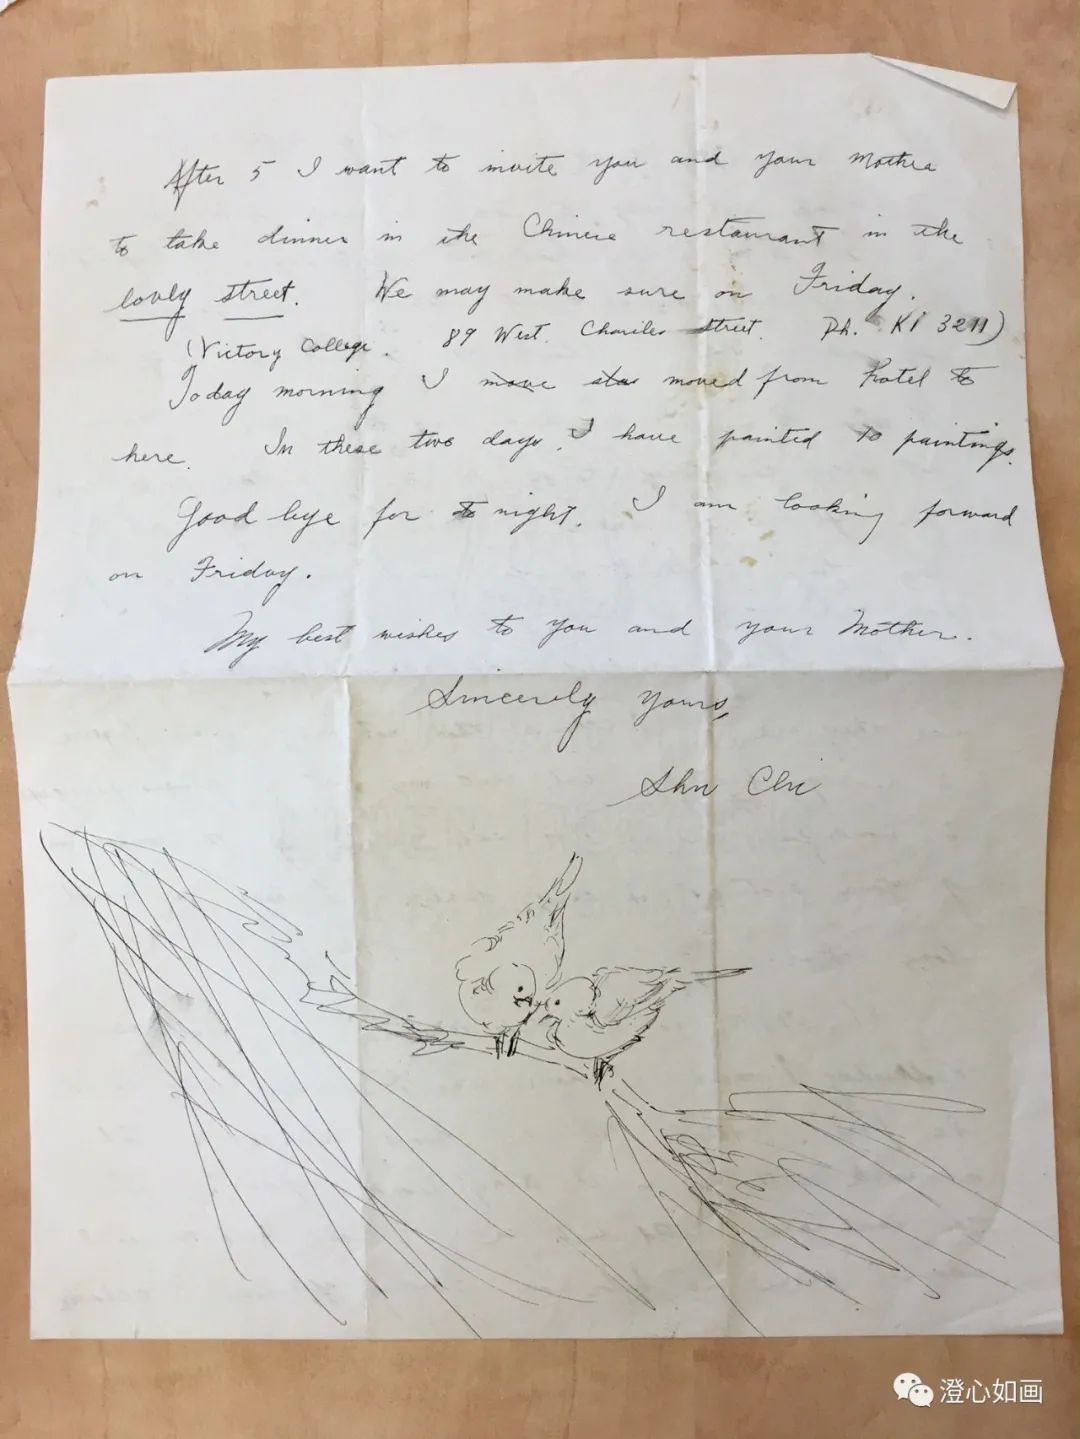 After 5 I want to invite you and your Mother
to take dinner in the Chinese restaurant in the
lovly street. We may make sure on Friday.
(Victory College. 89 West. Charles street. Ph. KI 3211)
Today morning I move moved from hotel to
here. In these two days, I have painted 10 paintings.
Good bye for to night. I am looking forward
on Friday.
My best wishes to you and your Mother.
Sincerely yours,
Shu Chi
澄心如画